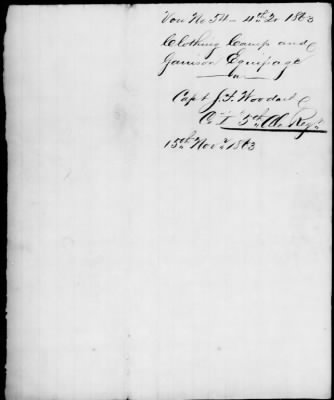 Vou No 54 - 4th Qr 1863
Clothing Camp and
Garrison Equipage
Capt J. F. Woodard
Co I 5th Ala Regt
15th Nov 1863